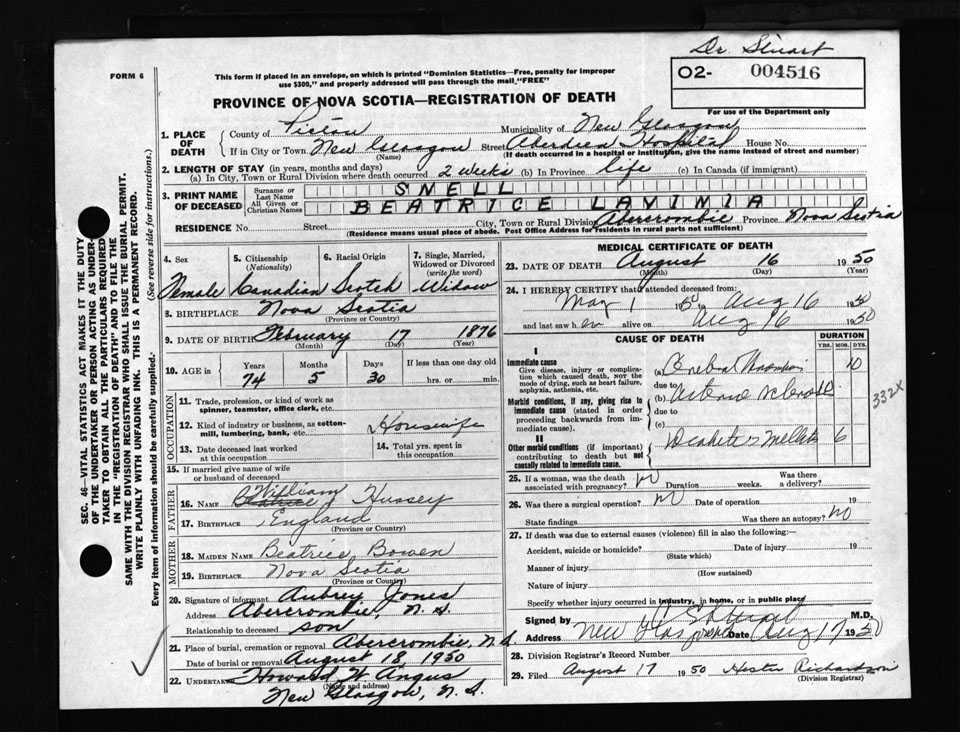 Dr. Stuart
FORM 6
This form if placed in an envelope, on which is printed "Dominion Statistics—Free, penalty for improper
use $300," and properly addressed will pass through the mail "FREE"
O2- 004516
For use of the Department only
PROVINCE OF NOVA SCOTIA—REGISTRATION OF DEATH
SEC. 46—VITAL STATISTICS ACT MAKES IT THE DUTY
OF THE UNDERTAKER OR PERSON ACTING AS UNDER-
TAKER TO OBTAIN ALL THE PARTICULARS REQUIRED
IN THE "REGISTRATION OF DEATH" AND TO FILE THE
SAME WITH THE DIVISION REGISTRAR WHO SHALL ISSUE THE BURIAL PERMIT.
WRITE PLAINLY WITH UNFADING INK. THIS IS A PERMANENT RECORD.
Every item of information should be carefully supplied. (See reverse side for instructions.)
1. PLACE OF DEATH
County of Pictou Municipality of New Glasgow
If in City or Town New Glasgow Street Aberdeen Hospital House No.
(Name) (If death occurred in a hospital or institution, give the name instead of street and number)
2. LENGTH OF STAY (in years, months and days)
(a) In City, Town or Rural Division where death occurred 2 weeks (b) In Province life (c) In Canada (if immigrant)
3. PRINT NAME OF DECEASED
Surname or Last Name SNELL
All Given or Christian Names BEATRICE LAVINIA
RESIDENCE No. Street City, Town or Rural Division Abercrombie Province Nova Scotia
(Residence means usual place of abode. Post Office Address for residents in rural parts not sufficient)
4. Sex 5. Citizenship (Nationality) 6. Racial Origin 7. Single, Married, Widowed or Divorced (write the word)
Female Canadian Scotch Widow
8. BIRTHPLACE Nova Scotia
(Province or Country)
9. DATE OF BIRTH February 17 1876
(Month) (Day) (Year)
10. AGE in Years Months Days If less than one day old
74 5 30 hrs. or min.
OCCUPATION
11. Trade, profession, or kind of work as spinner, teamster, office clerk, etc.
12. Kind of industry or business, as cotton-mill, lumbering, bank, etc. Housewife
13. Date deceased last worked at this occupation 14. Total yrs. spent in this occupation
15. If married give name of wife or husband of deceased
FATHER
William
16. Name Hussey
17. Birthplace England
(Province or Country)
MOTHER
18. Maiden Name Beatrice Bowen
19. Birthplace Nova Scotia
(Province or Country)
20. Signature of informant Aubrey Jones
Address Abercrombie, N. S.
Relationship to deceased son
21. Place of burial, cremation or removal Abercrombie, N.S.
Date of burial or removal August 18, 1950
22. Undertaker Howard W. Angus
(Name and address)
New Glasgow, N. S.
MEDICAL CERTIFICATE OF DEATH
23. DATE OF DEATH August 16 1950
(Month) (Day) (Year)
24. I HEREBY CERTIFY that I attended deceased from:
May 1 1950 to Aug 16 1950
and last saw her alive on Aug 16 1950
CAUSE OF DEATH DURATION
YRS. MOS. DYS.
I
Immediate cause
Give disease, injury or complication which caused death, not the mode of dying, such as heart failure, asphyxia, asthenia, etc.
(a) Cerebral Thrombosis 10
due to
(b) Arterio sclerosis 10
Morbid conditions, if any, giving rise to immediate cause (stated in order proceeding backwards from immediate cause).
due to
(c)
II
Other morbid conditions (if important) contributing to death but not causally related to immediate cause.
Diabetes Mellitus 6
332X
25. If a woman, was the death associated with pregnancy? No Duration weeks. Was there a delivery?
26. Was there a surgical operation? No Date of operation 19
State findings Was there an autopsy? No
27. If death was due to external causes (violence) fill in also the following:—
Accident, suicide or homicide? Date of injury 19
(State which)
Manner of injury
(How sustained)
Nature of injury
Specify whether injury occurred in Industry, in home, or in public place
Signed by M.D.
Address New Glasgow Date Aug 17 1950
28. Division Registrar's Record Number
29. Filed August 17 1950 Hester Richardson
(Division Registrar)